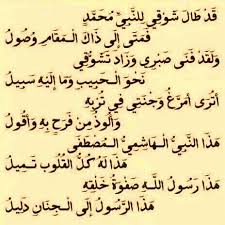 قَدْ طَالَ شَوْقِي لِلنَّبِيِّ مُحَمَّدٍ
فَمَتَى إِلَى ذَاكَ الْمَقَامِ وُصُولُ
وَلَقَدْ فَنَى صَبْرِي وَزَادَ تَشَوُّقِي
نَحْوَ الْحَبِيبِ وَمَا إِلَيْهِ سَبِيلُ
أَتُرَى أُمَرِّغُ وَجْنَتِي فِي تُرْبِهِ
وَأَلُوذُ مِنْ فَرَحٍ بِهِ وَأَقُولُ
هَذَا النَّبِيُّ الْهَاشِمِيُّ الْمُصْطَفَى
هَذَا لَهُ كُلُّ الْقُلُوبِ تَمِيلُ
هَذَا رَسُولُ اللَّهِ صَفْوَةُ خَلْقِهِ
هَذَا الرَّسُولُ إِلَى الْجِنَانِ دَلِيلُ